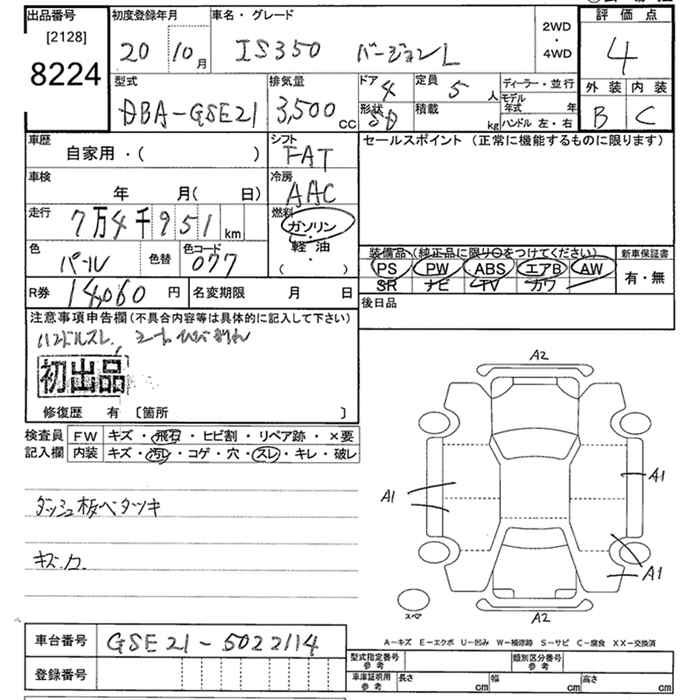 出品番号 初度登録年月 車名・グレード 2WD・4WD 評価点
[2128]
8224 20 10月 IS350 バージョンL 4
型式 排気量 ドア 4 定員 5人 ディーラー・並行 外装 内装
DBA-GSE21 3,500cc 形状 SD 積載 kg モデル年式 年 ハンドル 左・右 B C
車歴 自家用・( ) シフト FAT セールスポイント (正常に機能するものに限ります)
車検 年 月( 日) 冷房 AAC
走行 7万4千951km 燃料 ガソリン・軽油・( )
色 パール 色替 色コード 077
装備品 (純正品に限り○をつけてください) 新車保証書
PS PW ABS エアB AW 有・無
SR ナビ TV カワ
R券 14,060円 名変期限 月 日 後日品
注意事項申告欄 (不具合内容等は具体的に記入して下さい)
ハンドルスレ、シートひびわれ
初出品
修復歴 有 〔箇所 〕
検査員記入欄 FW キズ・飛石・ヒビ割・リペア跡・×要
内装 キズ・汚レ・コゲ・穴・スレ・キレ・破レ
ダッシュ板ベタツキ
キズ.カ.
A2
A1
A1
A1
A2
スペ
A-キズ E-エクボ U-凹み W-補修跡 S-サビ C-腐食 XX-交換済
車台番号 GSE21-5022114
登録番号
型式指定番号 参考 類別区分番号 参考
車庫証明用 参考 長さ cm 幅 cm 高さ cm